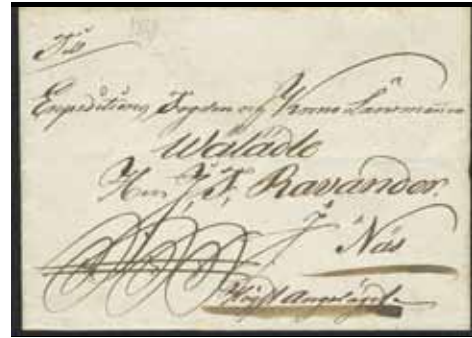 Till
Expeditions Fogden och Krono Länsmannen
Wälädle
Herr J. F. Ravander.
Näs
Högst Angelägit